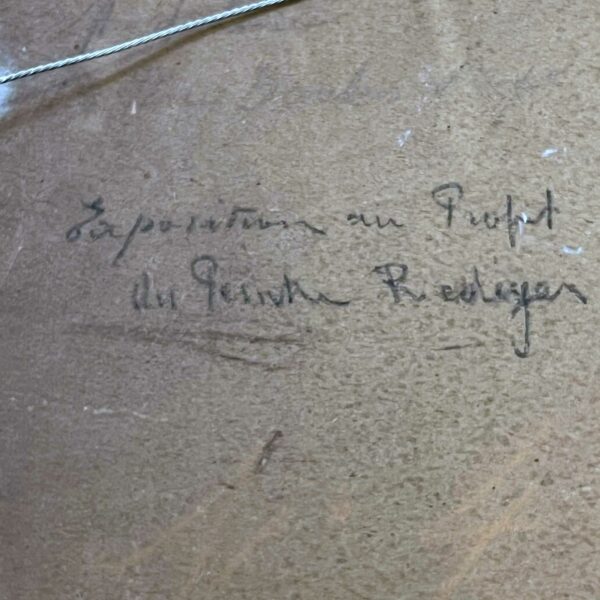 Exposition au Profit
du Peintre